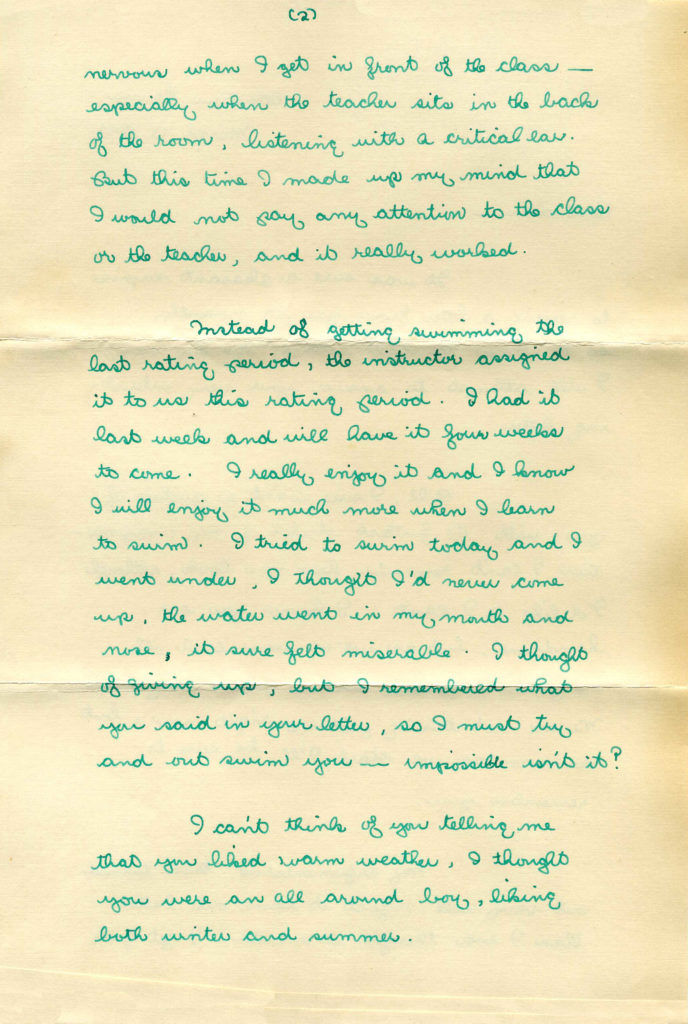 (2)
nervous when I get in front of the class —
especially when the teacher sits in the back
of the room, listening with a critical ear.
But this time I made up my mind that
I would not pay any attention to the class
or the teacher, and it really worked.
Instead of getting swimming the
last rating period, the instructor assigned
it to us this rating period. I had it
last week and will have it four weeks
to come. I really enjoy it and I know
I will enjoy it much more when I learn
to swim. I tried to swim today and I
went under, I thought I'd never come
up, the water went in my mouth and
nose, it sure felt miserable. I thought
of giving up, but I remembered what
you said in your letter, so I must try
and out swim you — impossible isn't it?
I can't think of you telling me
that you liked warm weather, I thought
you were an all around boy, liking
both winter and summer.